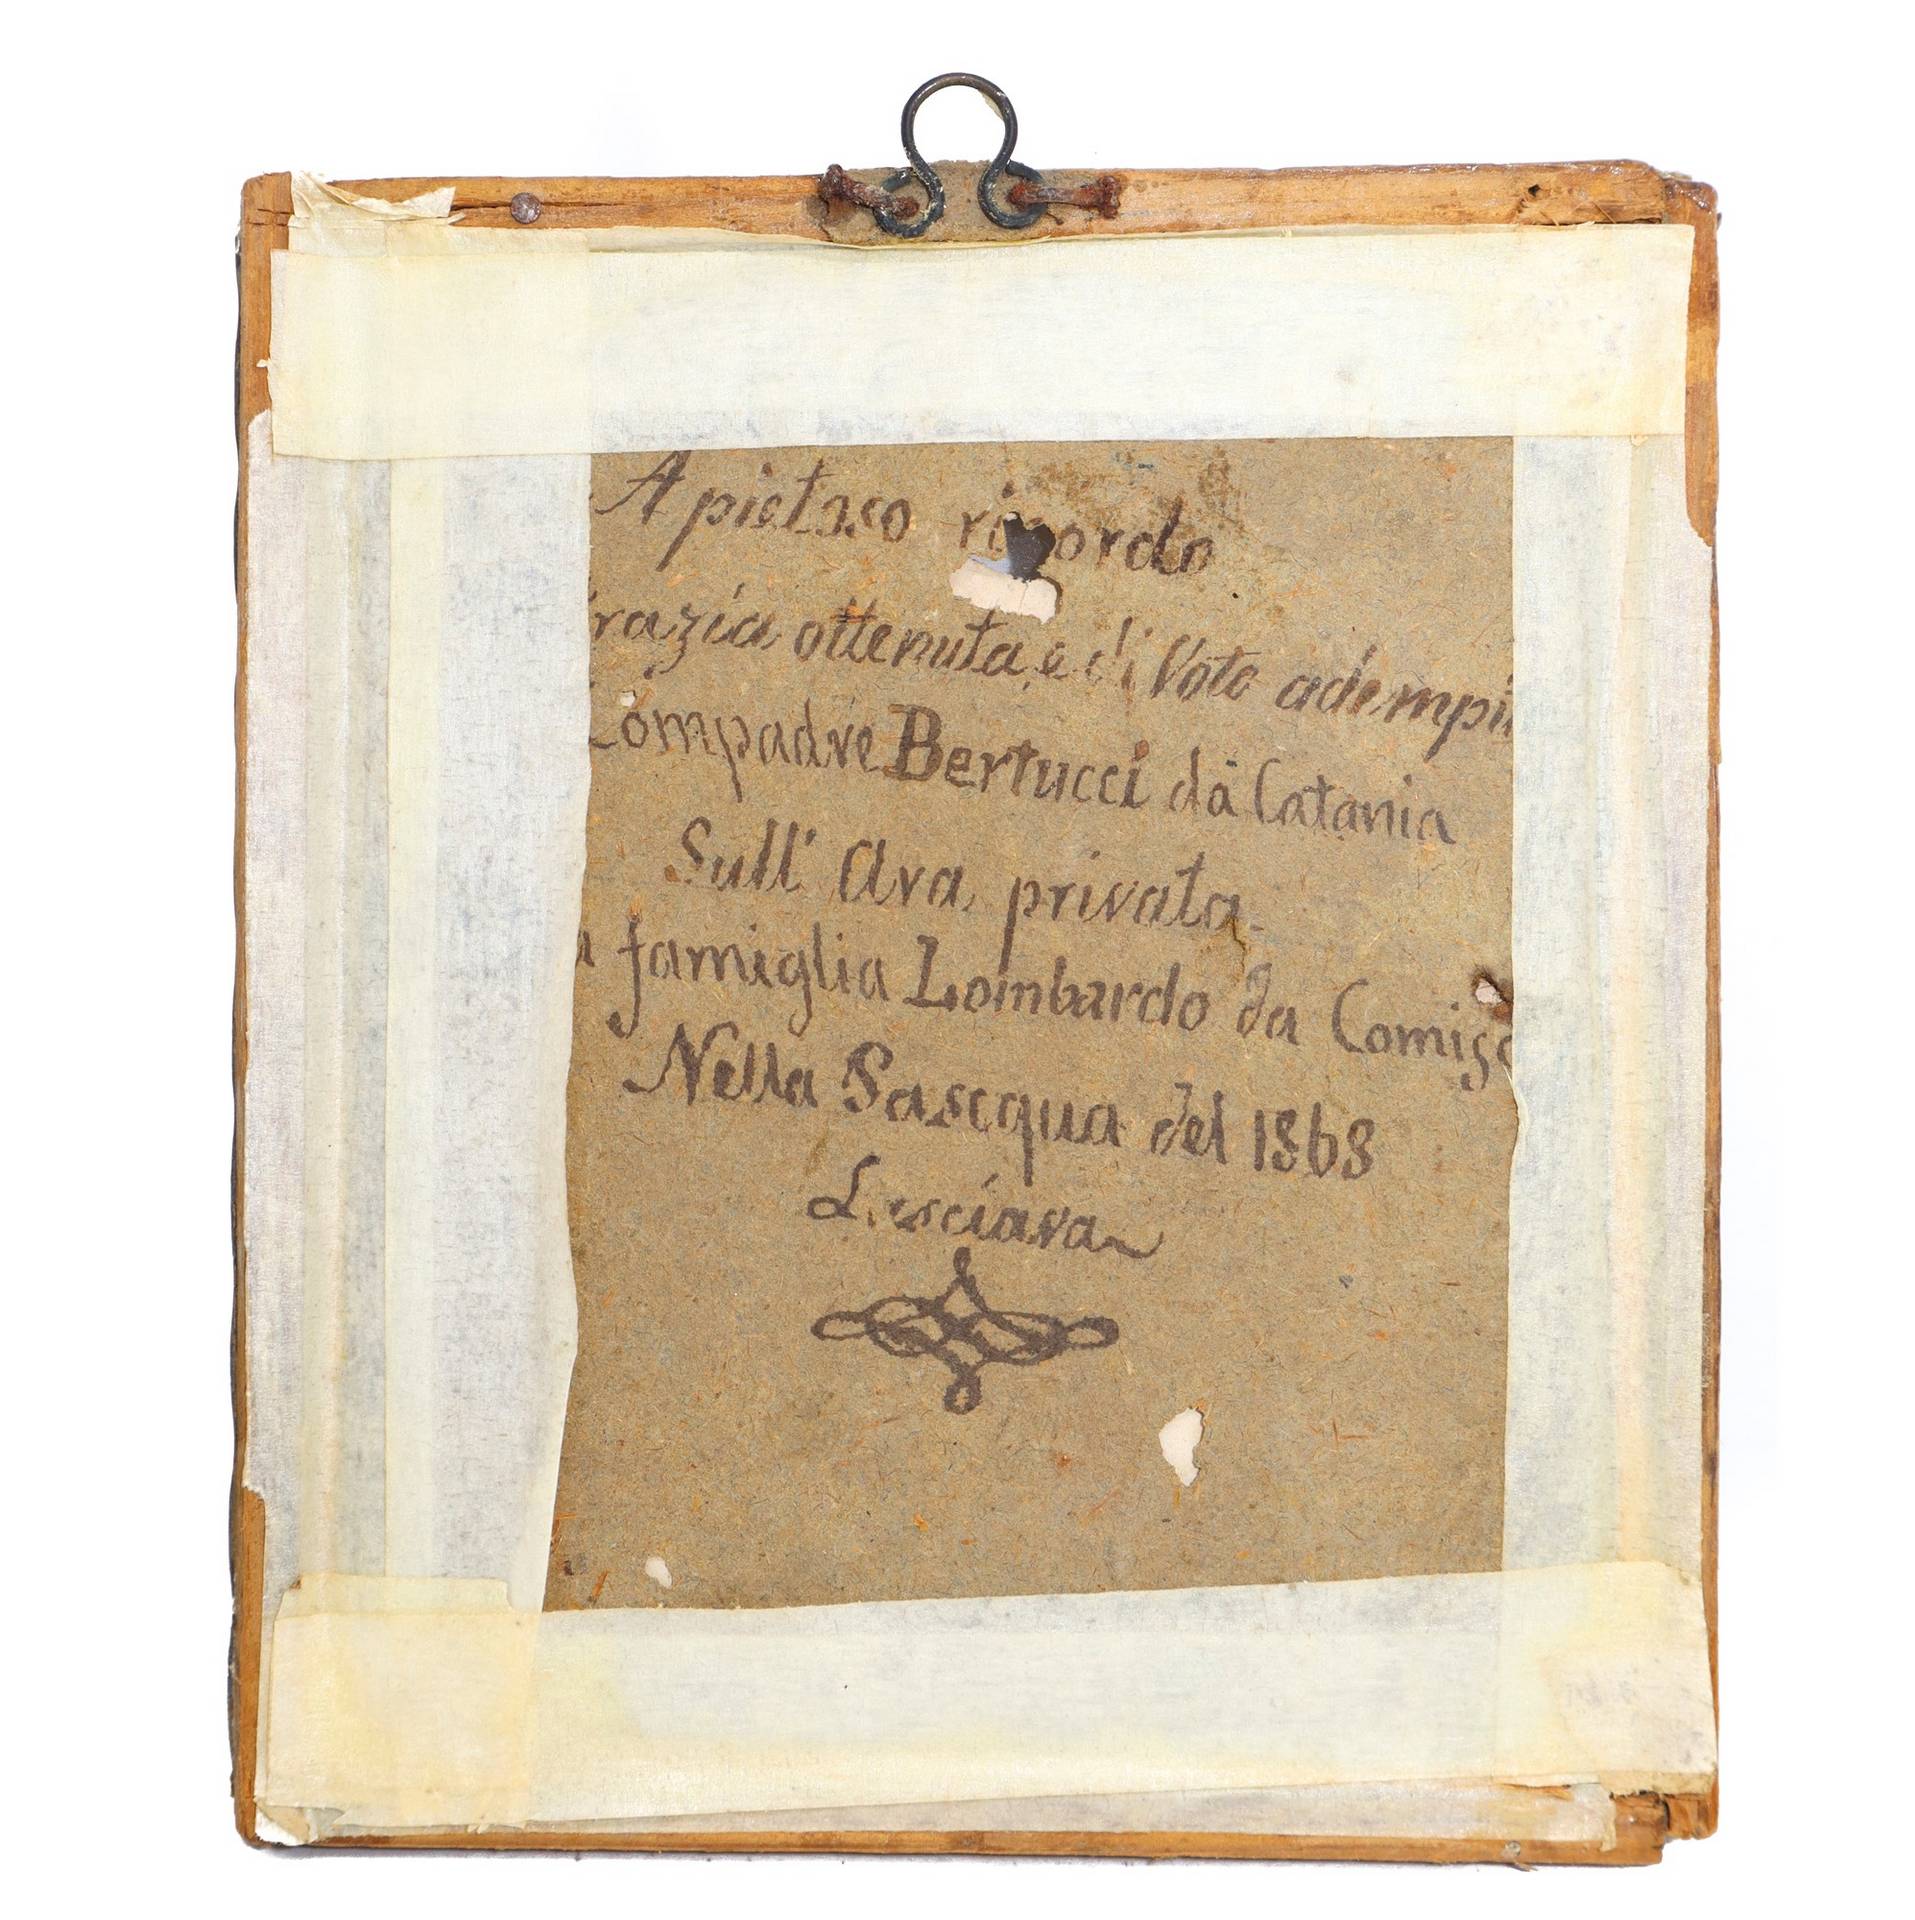 A pietoso ricordo
razia ottenuta, e di Voto adempi
Compadre Bertucci da Catania
Sull' Ara privata
a famiglia Lombardo da Comiso
Nella Pascqua del 1868
L. sciara